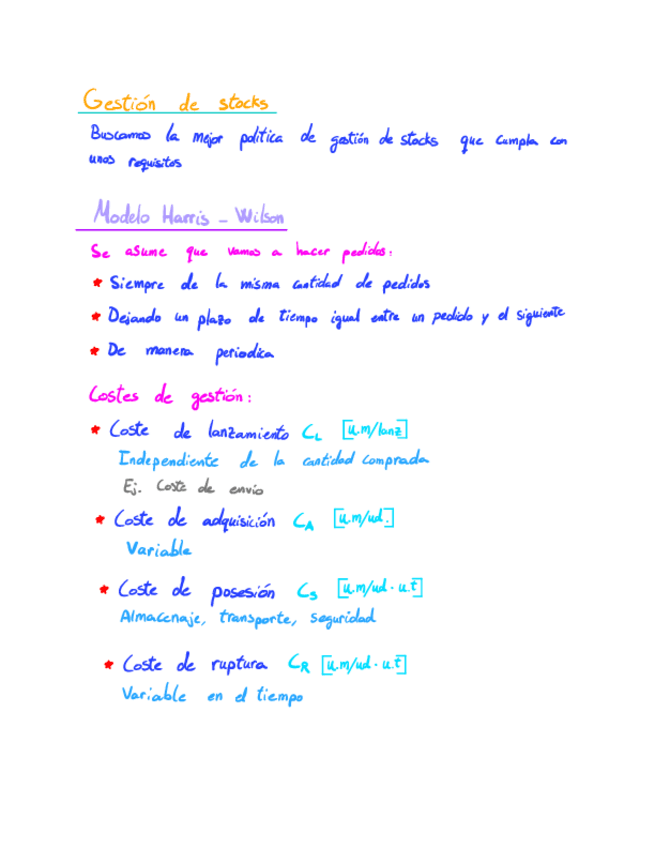 Gestión de stocks
Buscamos la mejor política de gestión de stocks que cumpla con
unos requisitos
Modelo Harris - Wilson
Se asume que vamos a hacer pedidos:
* Siempre de la misma cantidad de pedidos
* Dejando un plazo de tiempo igual entre un pedido y el siguiente
* De manera periodica
Costes de gestión:
* Coste de lanzamiento CL [u.m/lanz]
Independiente de la cantidad comprada
Ej. Coste de envío
* Coste de adquisición CA [u.m/ud.]
Variable
* Coste de posesión CS [u.m/ud · u.t]
Almacenaje, transporte, seguridad
* Coste de ruptura CR [u.m/ud · u.t]
Variable en el tiempo